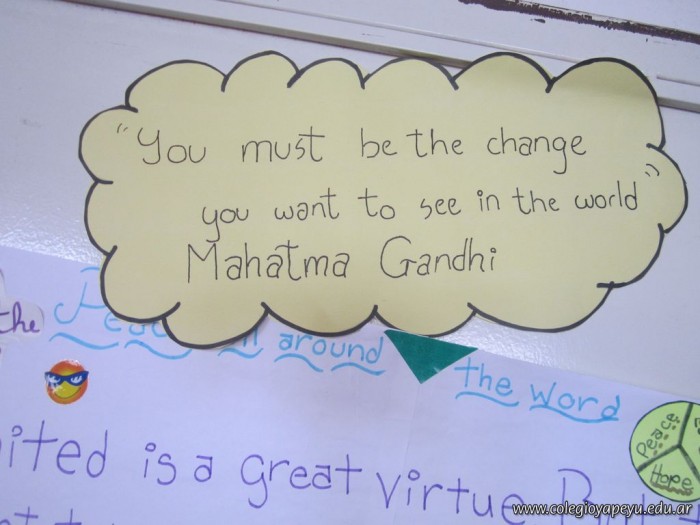 "You must be the change
you want to see in the world"
Mahatma Gandhi
the
Peace all around
the word
ited is a great virtue
Peace
Hope
www.colegioyapeyu.edu.ar